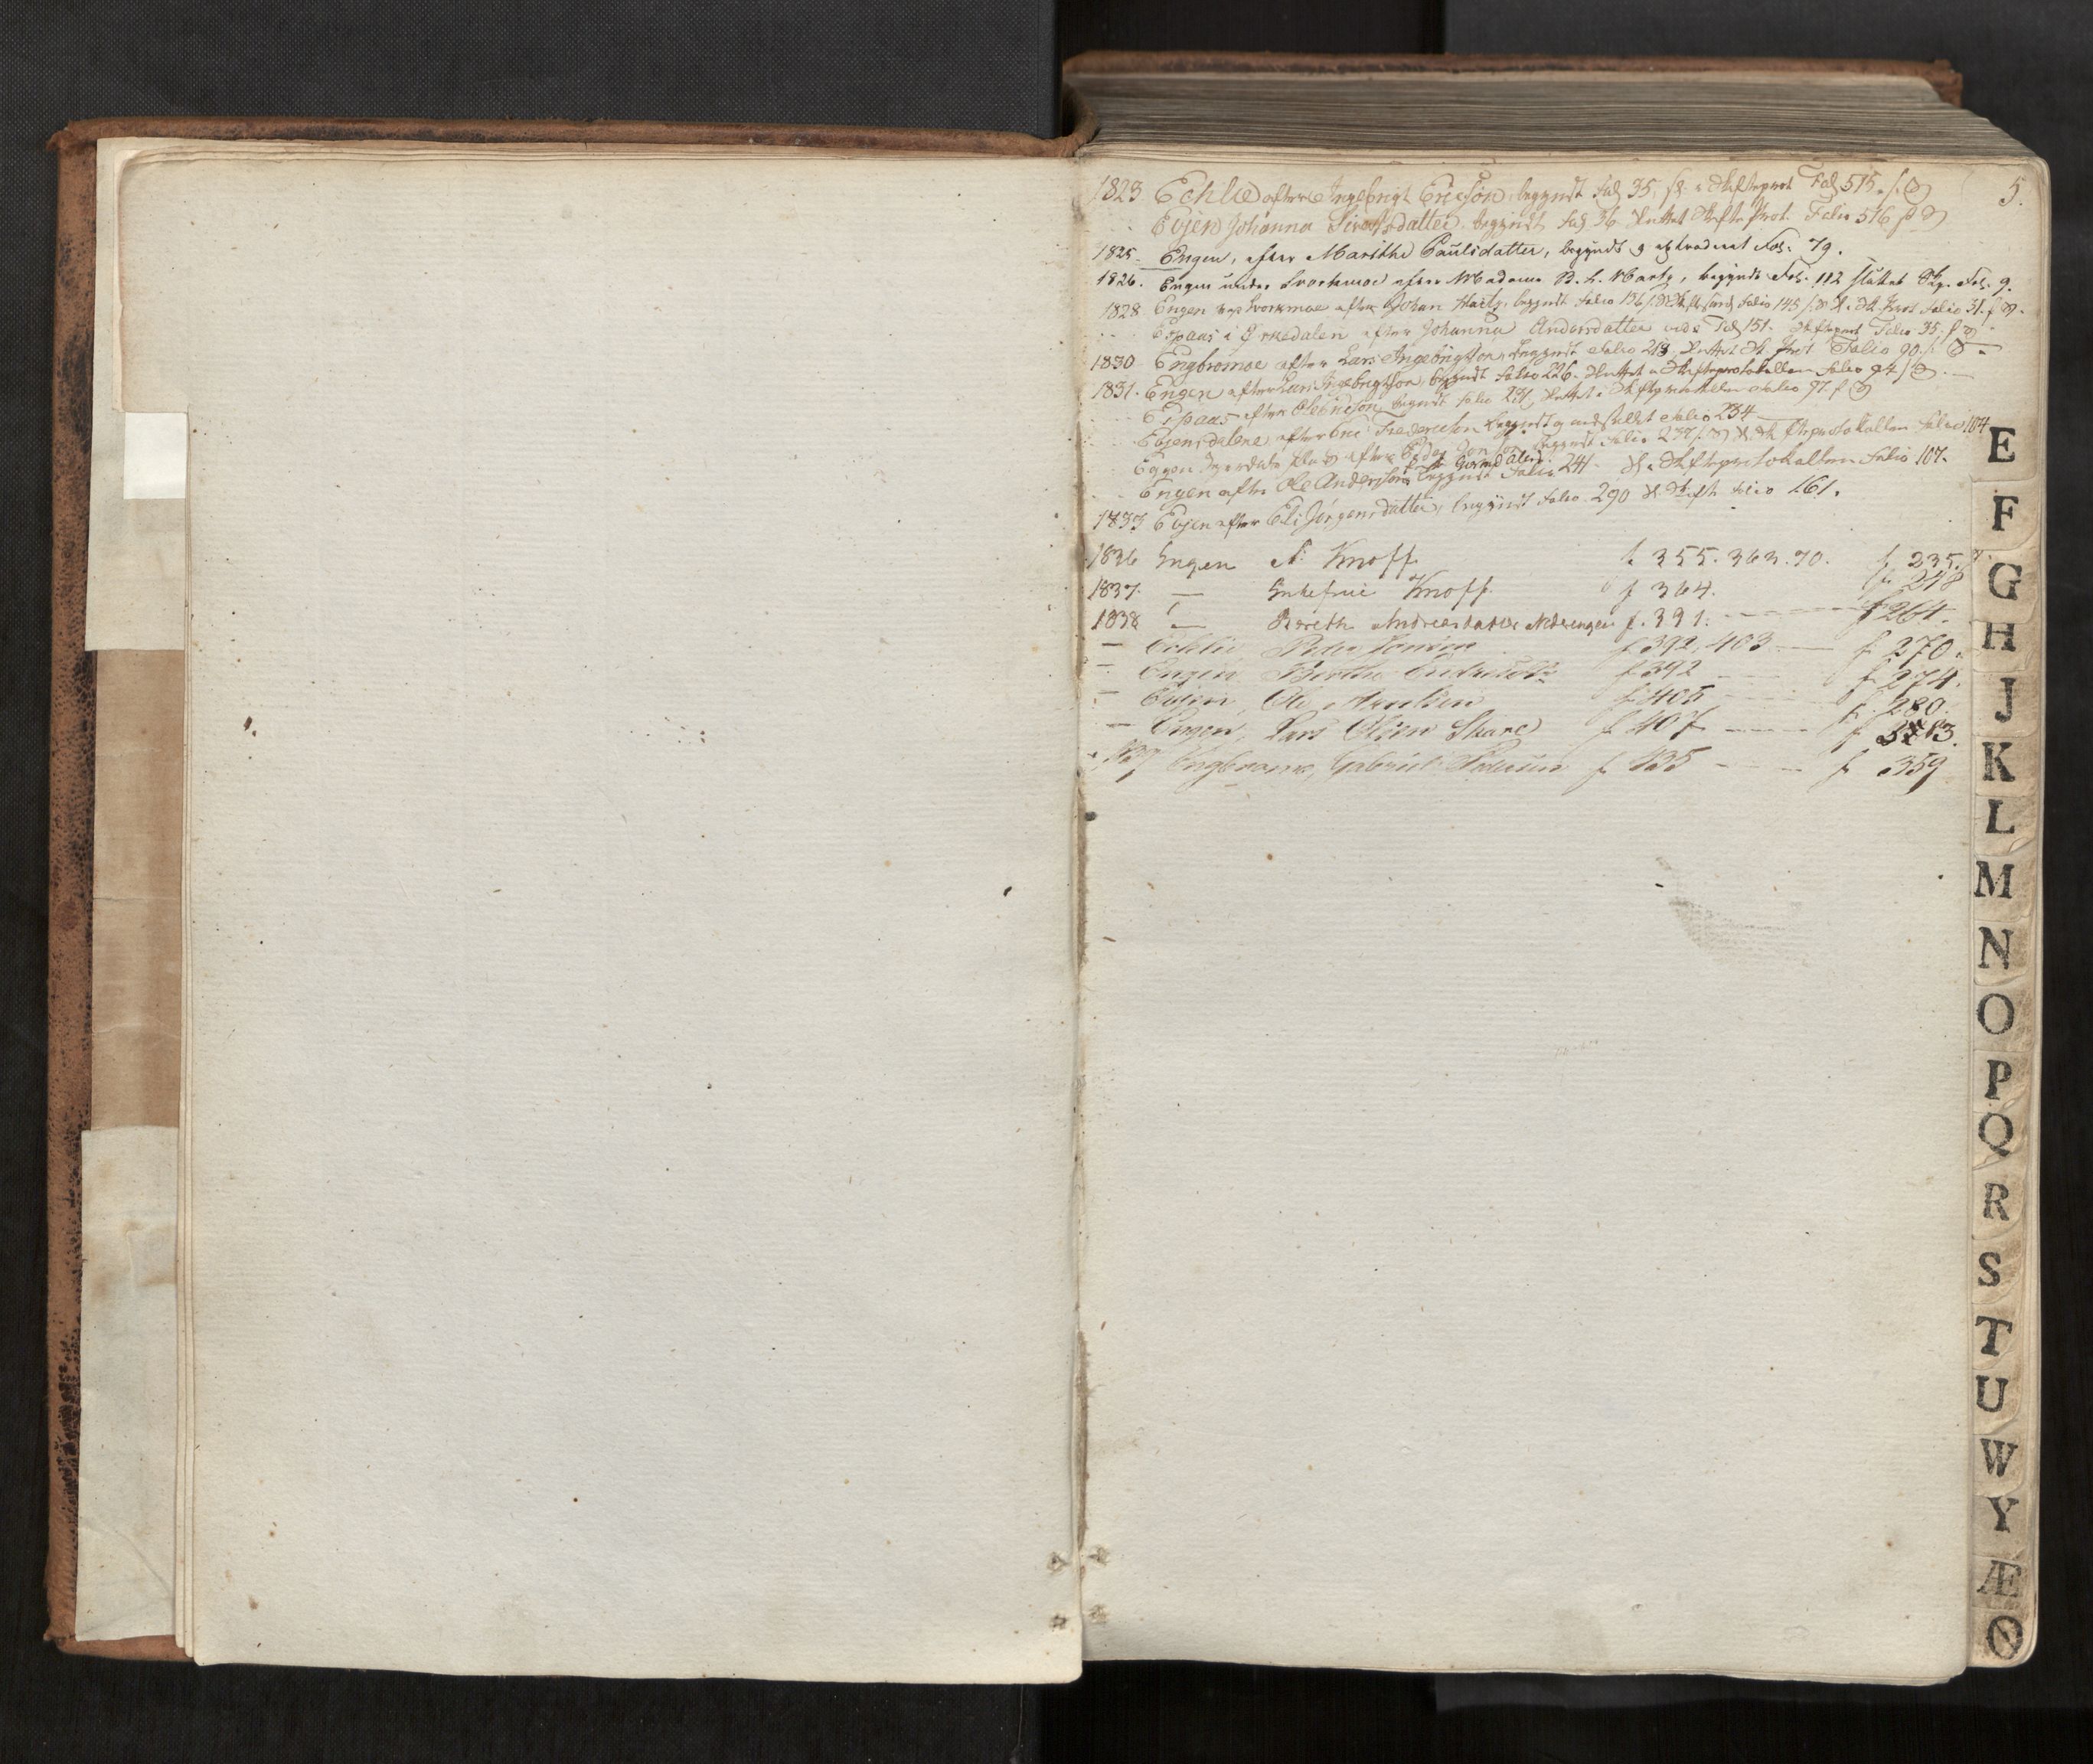 5.
1823 Echlie after Ingebrigt Ericsøn, begyndt Fol 35, sl. i Skifteprot Fol 515
Evjen Johanna Sivertsdatter begyndt Fol 36 sluttet Skifteprot. Folio 516
1825 - Engen, efter Marithe Paulsdatter, begyndt og extraderet Fol: 79.
1826. Engen under Svorkmoe efter Madame B. L. Hartz, begyndt Fol: 112 sluttet Skp. Fol. 9.
1828 Engen ved Svorkmoe after Johan Hartz, begyndt Folio 136 Folio 145 Sk. Prot Folio 31.
Espaas i Ørkedalen after Johanna Andersdatter vide Fol 151. Skifteprot Folio 35.
1830 Engbromoe after Lars Ingebrigtsøn, begyndt Folio 213, sluttet Sk. Prot Folio 90
1831. Engen after Lars Ingebrigtsøn, begyndt Folio 226. sluttet i Skifteprotokollen Folio 94
Espaas after Ole Ericsøn, begyndt Folio 231, sluttet i Skifteprotokollen Folio 97.
Evjensdalene after Eric Fredericsøn begyndt og Folio 234
Eggen after Peder begyndt Folio 237 Skifteprotokollen Folio 104
Engen after Ole Andersøn, begyndt Folio 241. Sl. i Skifteprotokollen Folio 107.
1833 Evjen after Eli Jørgensdatter, begyndt Folio 290 Sl Skifte Folio 161.
1836 Engen A: Knoff f. 355. 363. 70. f. 235.
1837. — Enkefrue Knoff. f 364. f. 248
1838 — Bereth Andreasdatter Nedrengen f. 391. f 264.
— Echlie Peder Jonsen f 392, 403 f 270.
— Engen, Berthe f 392 f 274.
— Evjen, Ole Arntsen f 405 f. 280.
— Engen, Lars Olsen Skare f 407 f 313.
Engbromoe, Gabriel Pedersen f 435 f 359
E
F
G
H
J
K
L
M
N
O
P
Q
R
S
T
U
W
Y
Æ
Ø